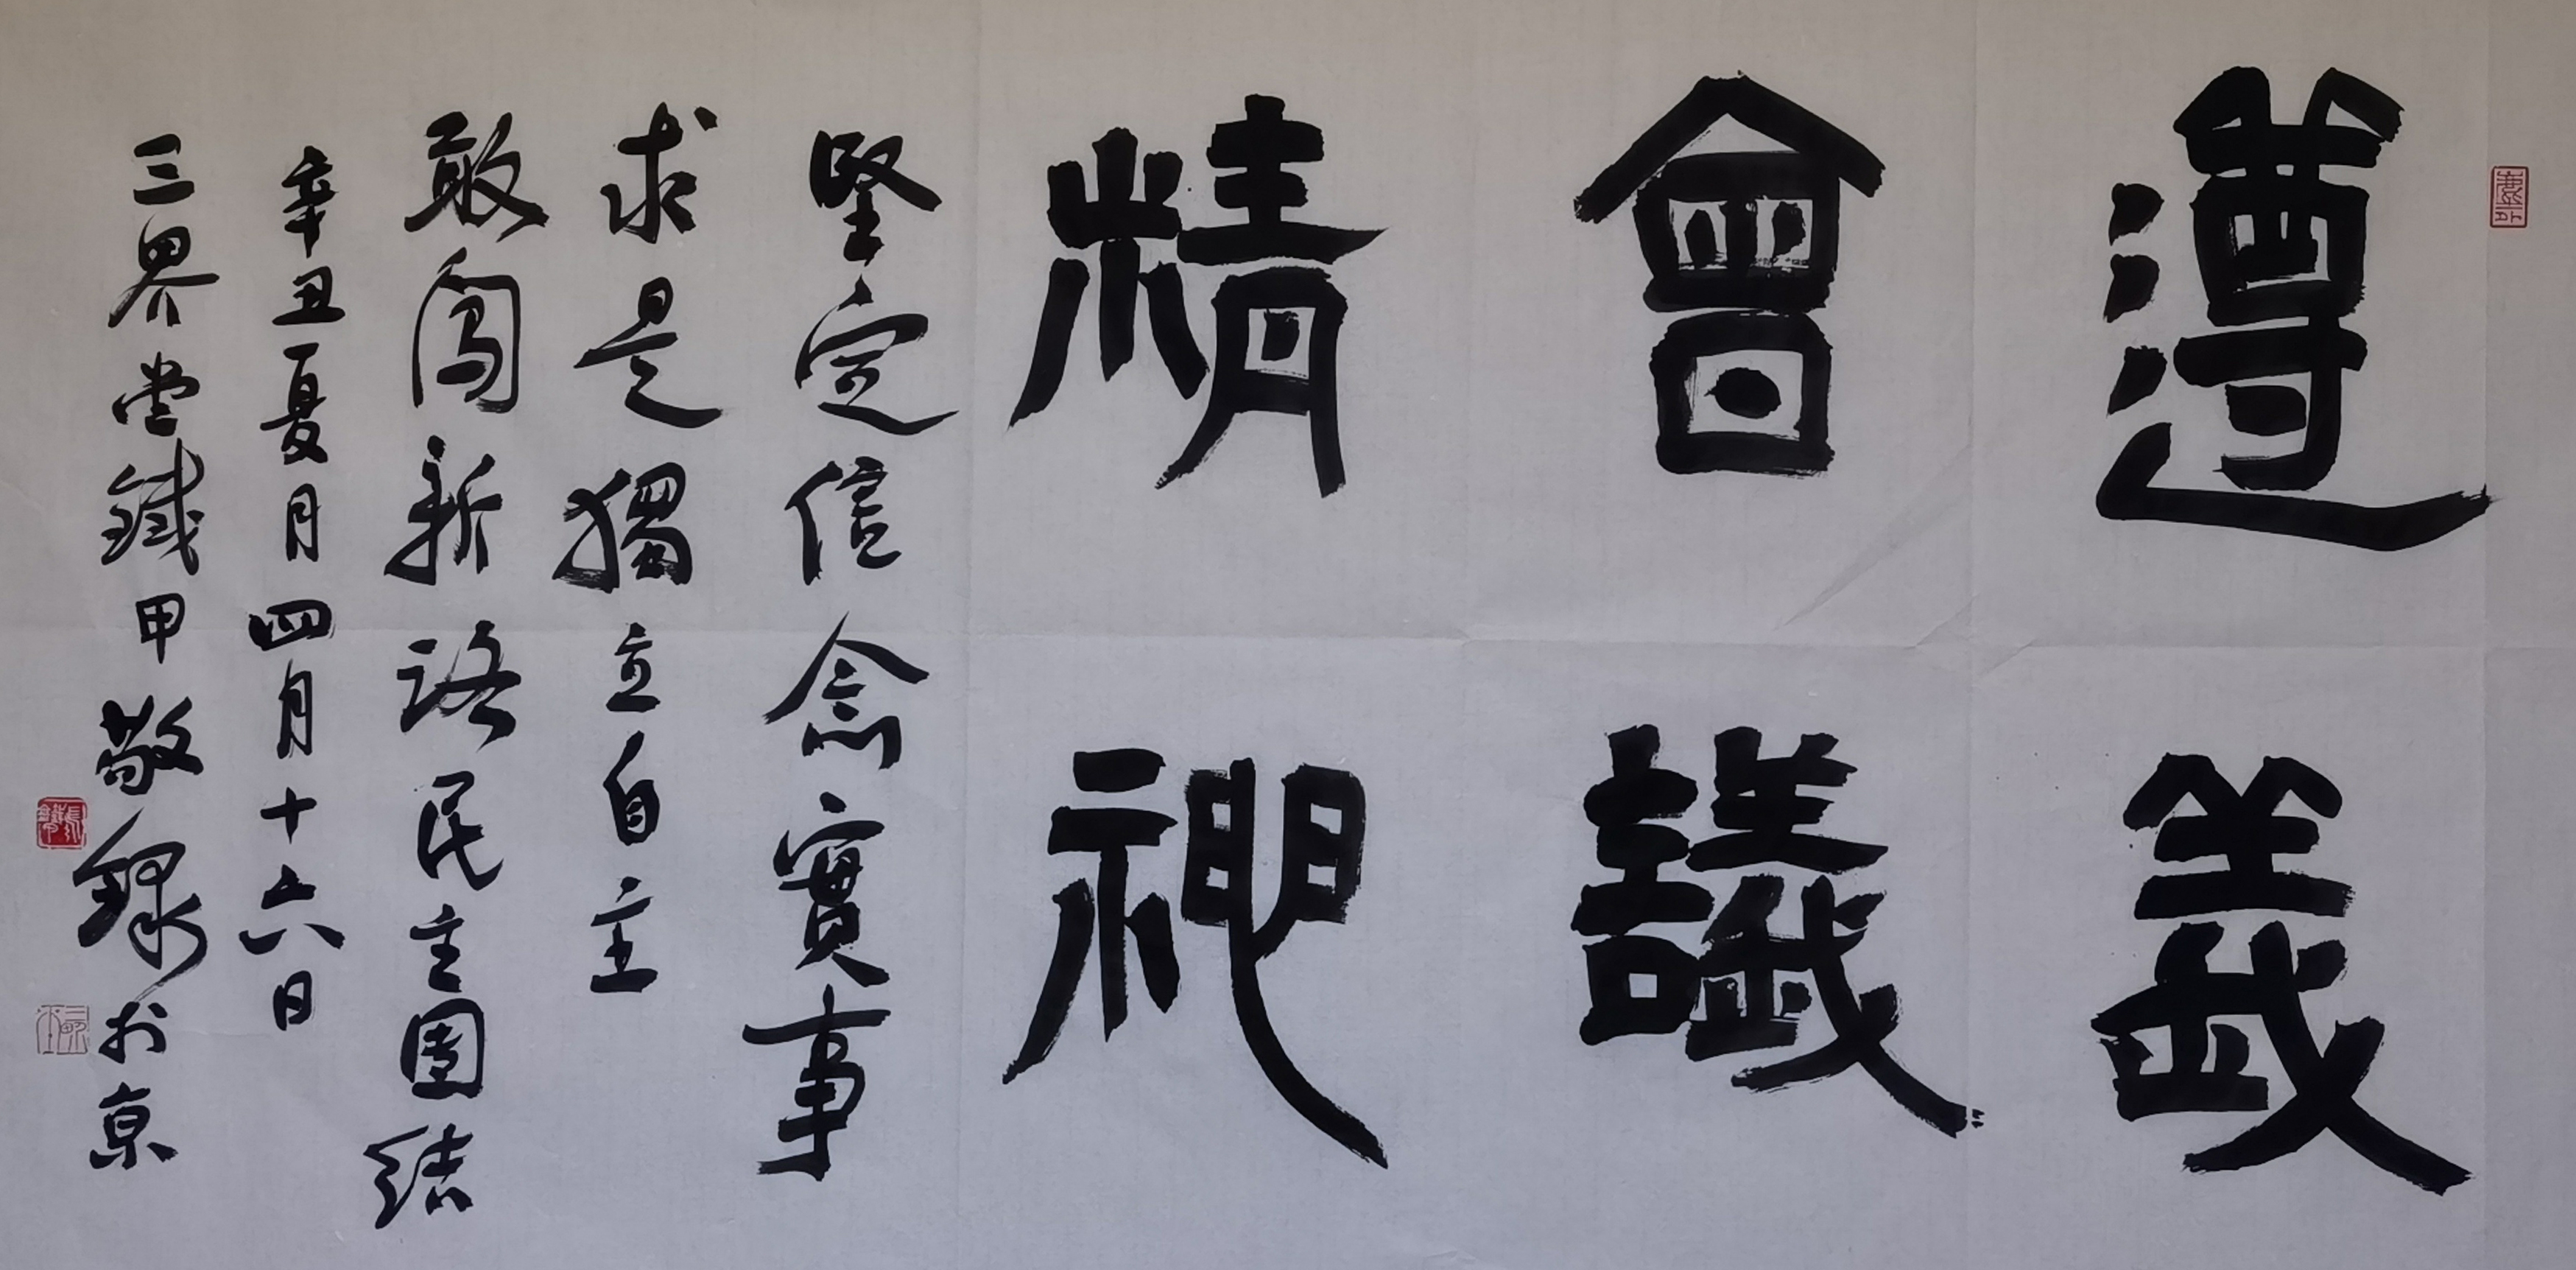 遵義
會議
精神
堅定信念實事
求是獨立自主
敢闖新路民主團結
辛丑夏月四月十六日
三界堂鐵甲敬錄於京